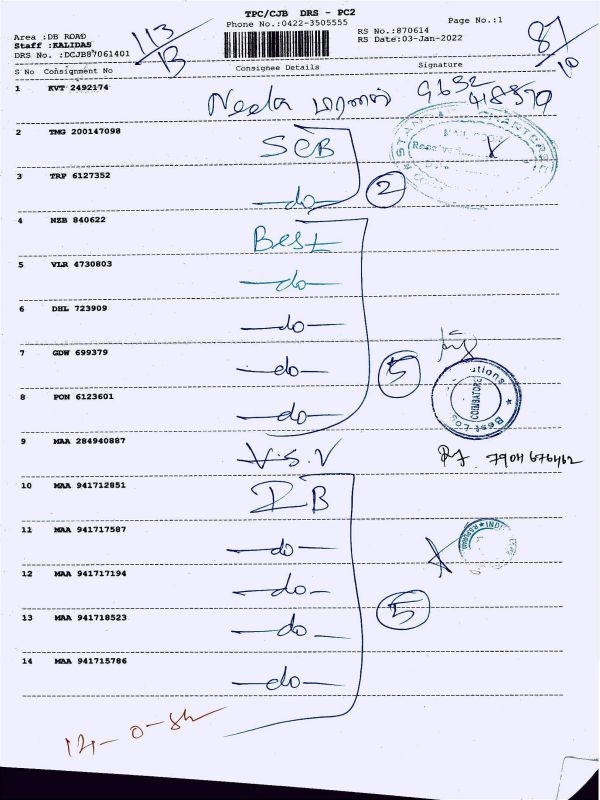 TPC/CJB DRS - PC2
Phone No.:0422-3505555
Page No.:1
Area :DB ROAD
Staff :KALIDAS
DRS No. :DCJB87061401
RS No.:870614
RS Date:03-Jan-2022
113/B
87/10
S No Consignment No Consignee Details Signature
1 KVT 2492174 Neela 9632
418370
2 TMG 200147098 SCB
3 TRP 6127352 —do— 2
4 NZB 840622 Best
5 VLR 4730803 —do—
6 DHL 723909 —do—
7 GDW 699379 —do— 5
8 PON 6123601 —do—
COIMBATORE
9 MAA 284940887 V.S.V 7904676462
10 MAA 941712851 IB
11 MAA 941717587 —do—
12 MAA 941717194 —do—
13 MAA 941718523 —do— 5
14 MAA 941715786 —do—